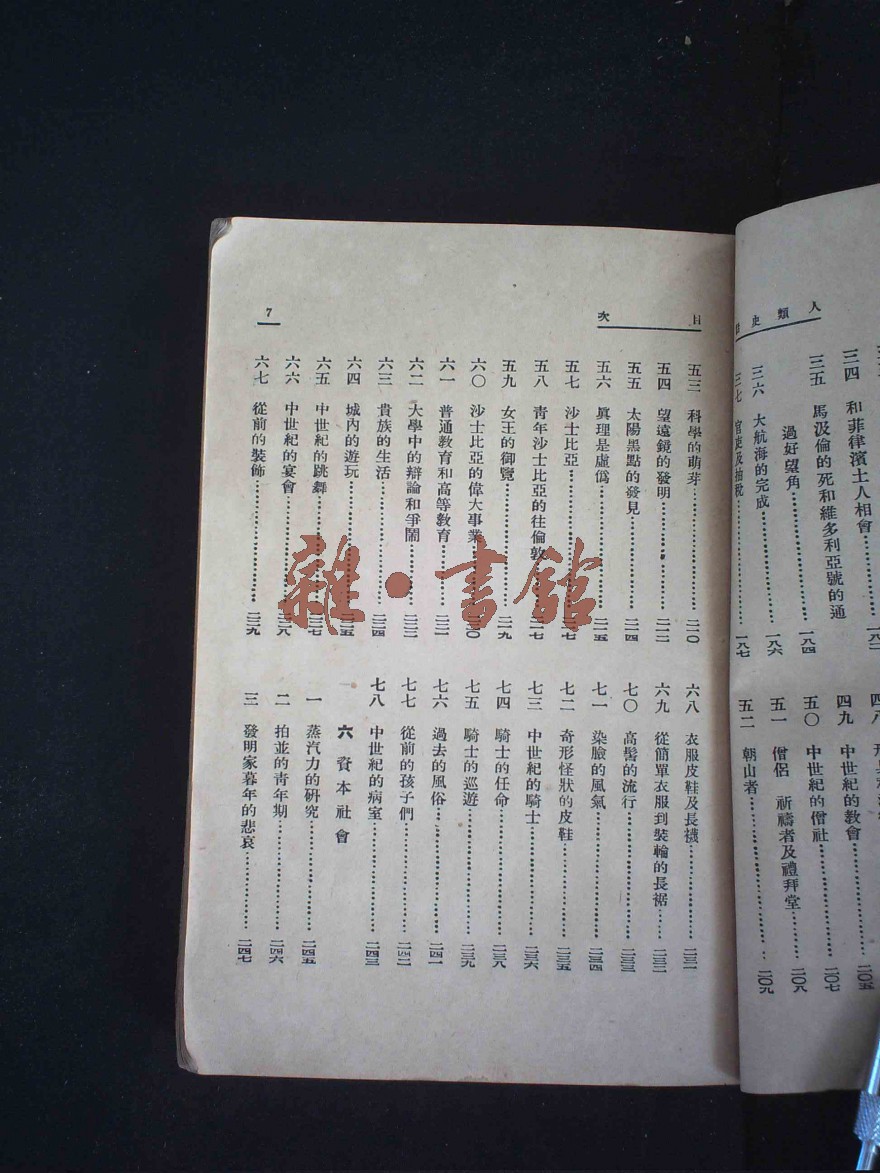 人類史
三四 和菲律濱士人相會⋯⋯一八二
三五 馬汲倫的死和維多利亞號的通
過好望角⋯⋯一八四
三六 大航海的完成⋯⋯一八六
三七 官吏及抽稅⋯⋯一八七
四八
四九 中世紀的教會⋯⋯二〇五
五〇 中世紀的僧社⋯⋯二〇七
五一 僧侶 祈禱者及禮拜堂⋯⋯二〇八
五二 朝山者⋯⋯二〇九
目次
7
五三 科學的萌芽⋯⋯二一〇
五四 望遠鏡的發明⋯⋯二一二
五五 太陽黑點的發見⋯⋯二一四
五六 眞理是虛僞⋯⋯二一五
五七 沙士比亞⋯⋯二一七
五八 靑年沙士比亞的往倫敦⋯⋯二一七
五九 女王的御覽⋯⋯二一九
六〇 沙士比亞的偉大事業⋯⋯二二〇
六一 普通敎育和高等敎育⋯⋯二二一
六二 大學中的辯論和爭鬧⋯⋯二二三
六三 貴族的生活⋯⋯二二四
六四 城內的遊玩⋯⋯二二五
六五 中世紀的跳舞⋯⋯二二七
六六 中世紀的宴會⋯⋯二二八
六七 從前的裝飾⋯⋯二二九
六八 衣服皮鞋及長襪⋯⋯二三一
六九 從簡單衣服到裝輪的長裾⋯⋯二三二
七〇 高髻的流行⋯⋯二三三
七一 染臉的風氣⋯⋯二三四
七二 奇形怪狀的皮鞋⋯⋯二三五
七三 中世紀的騎士⋯⋯二三六
七四 騎士的任命⋯⋯二三八
七五 騎士的巡遊⋯⋯二三九
七六 過去的風俗⋯⋯二四一
七七 從前的孩子們⋯⋯二四二
七八 中世紀的病室⋯⋯二四三
六 資本社會
一 蒸汽力的硏究⋯⋯二四五
二 拍並的靑年期⋯⋯二四六
三 發明家暮年的悲哀⋯⋯二四七
雜·書館